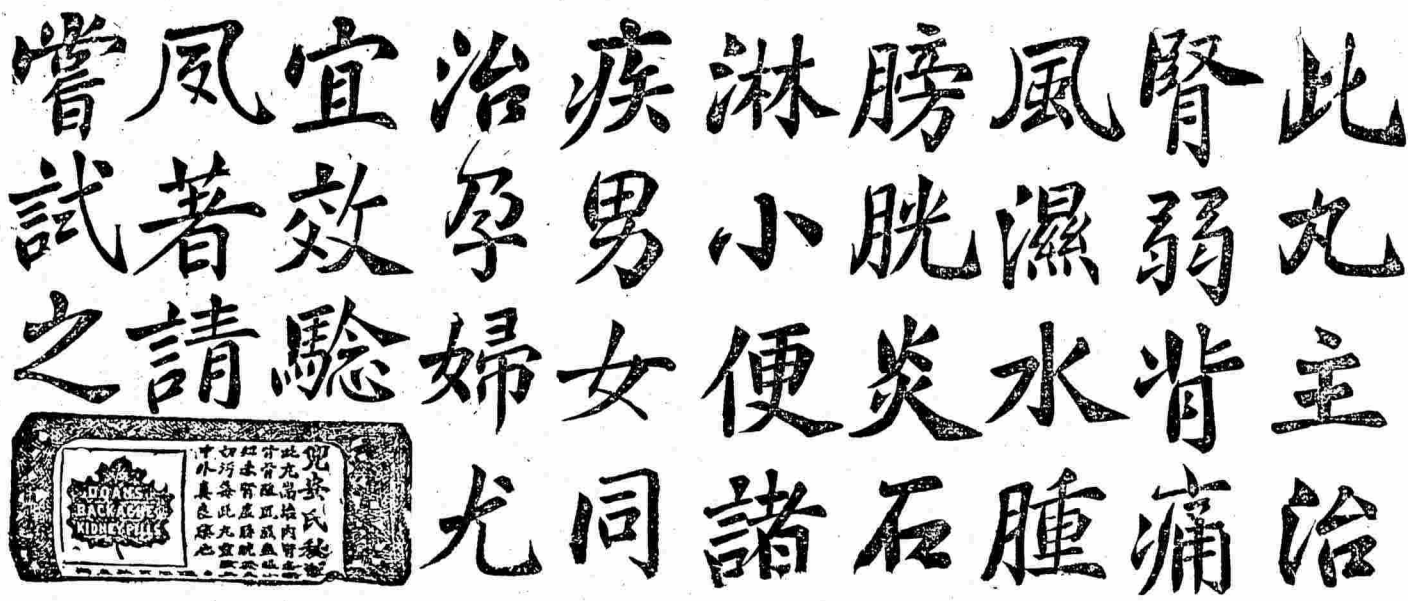 此丸主治
腎弱背痛
風濕水腫
膀胱炎石
淋小便諸
疾男女同
治孕婦尤
宜效驗
夙著請
嘗試之
DOAN'S
BACKACHE
KIDNEY PILLS
氏秘
中外真良藥也